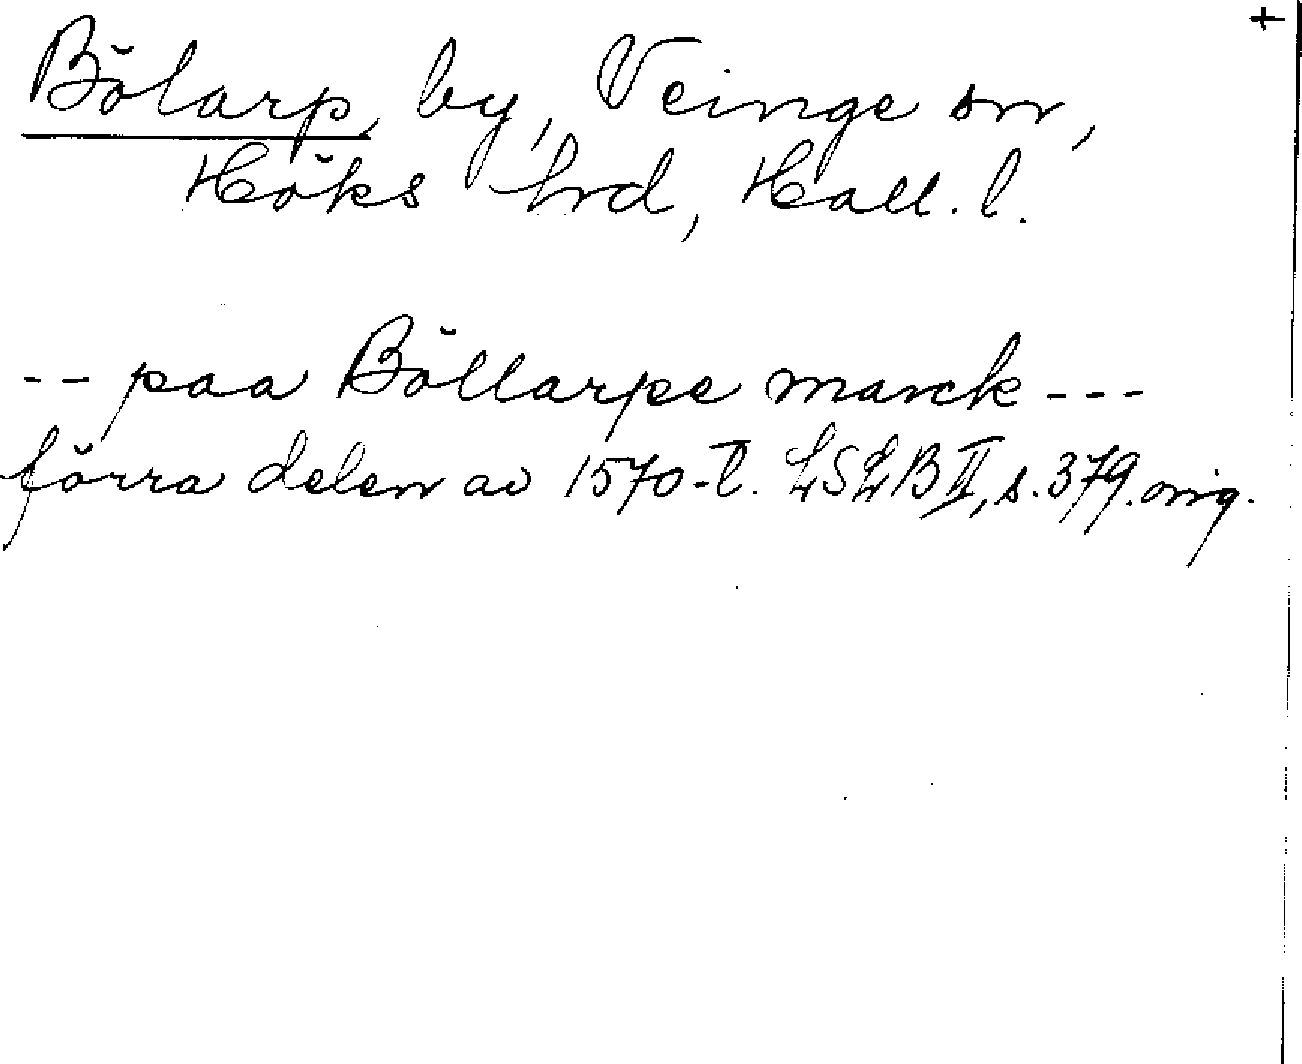 +
Bölarp, by, Veinge sn,
Höks hrd, Hall. l.
-- paa Böllarpe marck ---
förra delen av 1570-t. LSLB II, s. 379. orig.